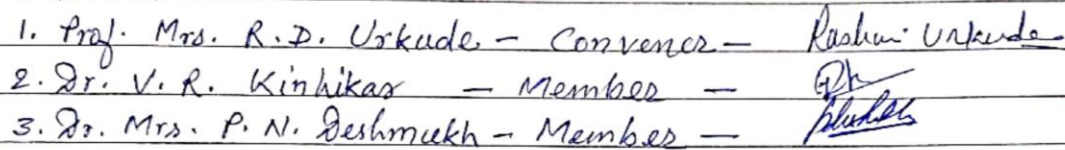 1. Prof. Mrs. R.D. Urkude - Convener - Rashmi Urkude
2. Dr. V. R. Kinhikar - Member -
3. Dr. Mrs. P. N. Deshmukh - Member -